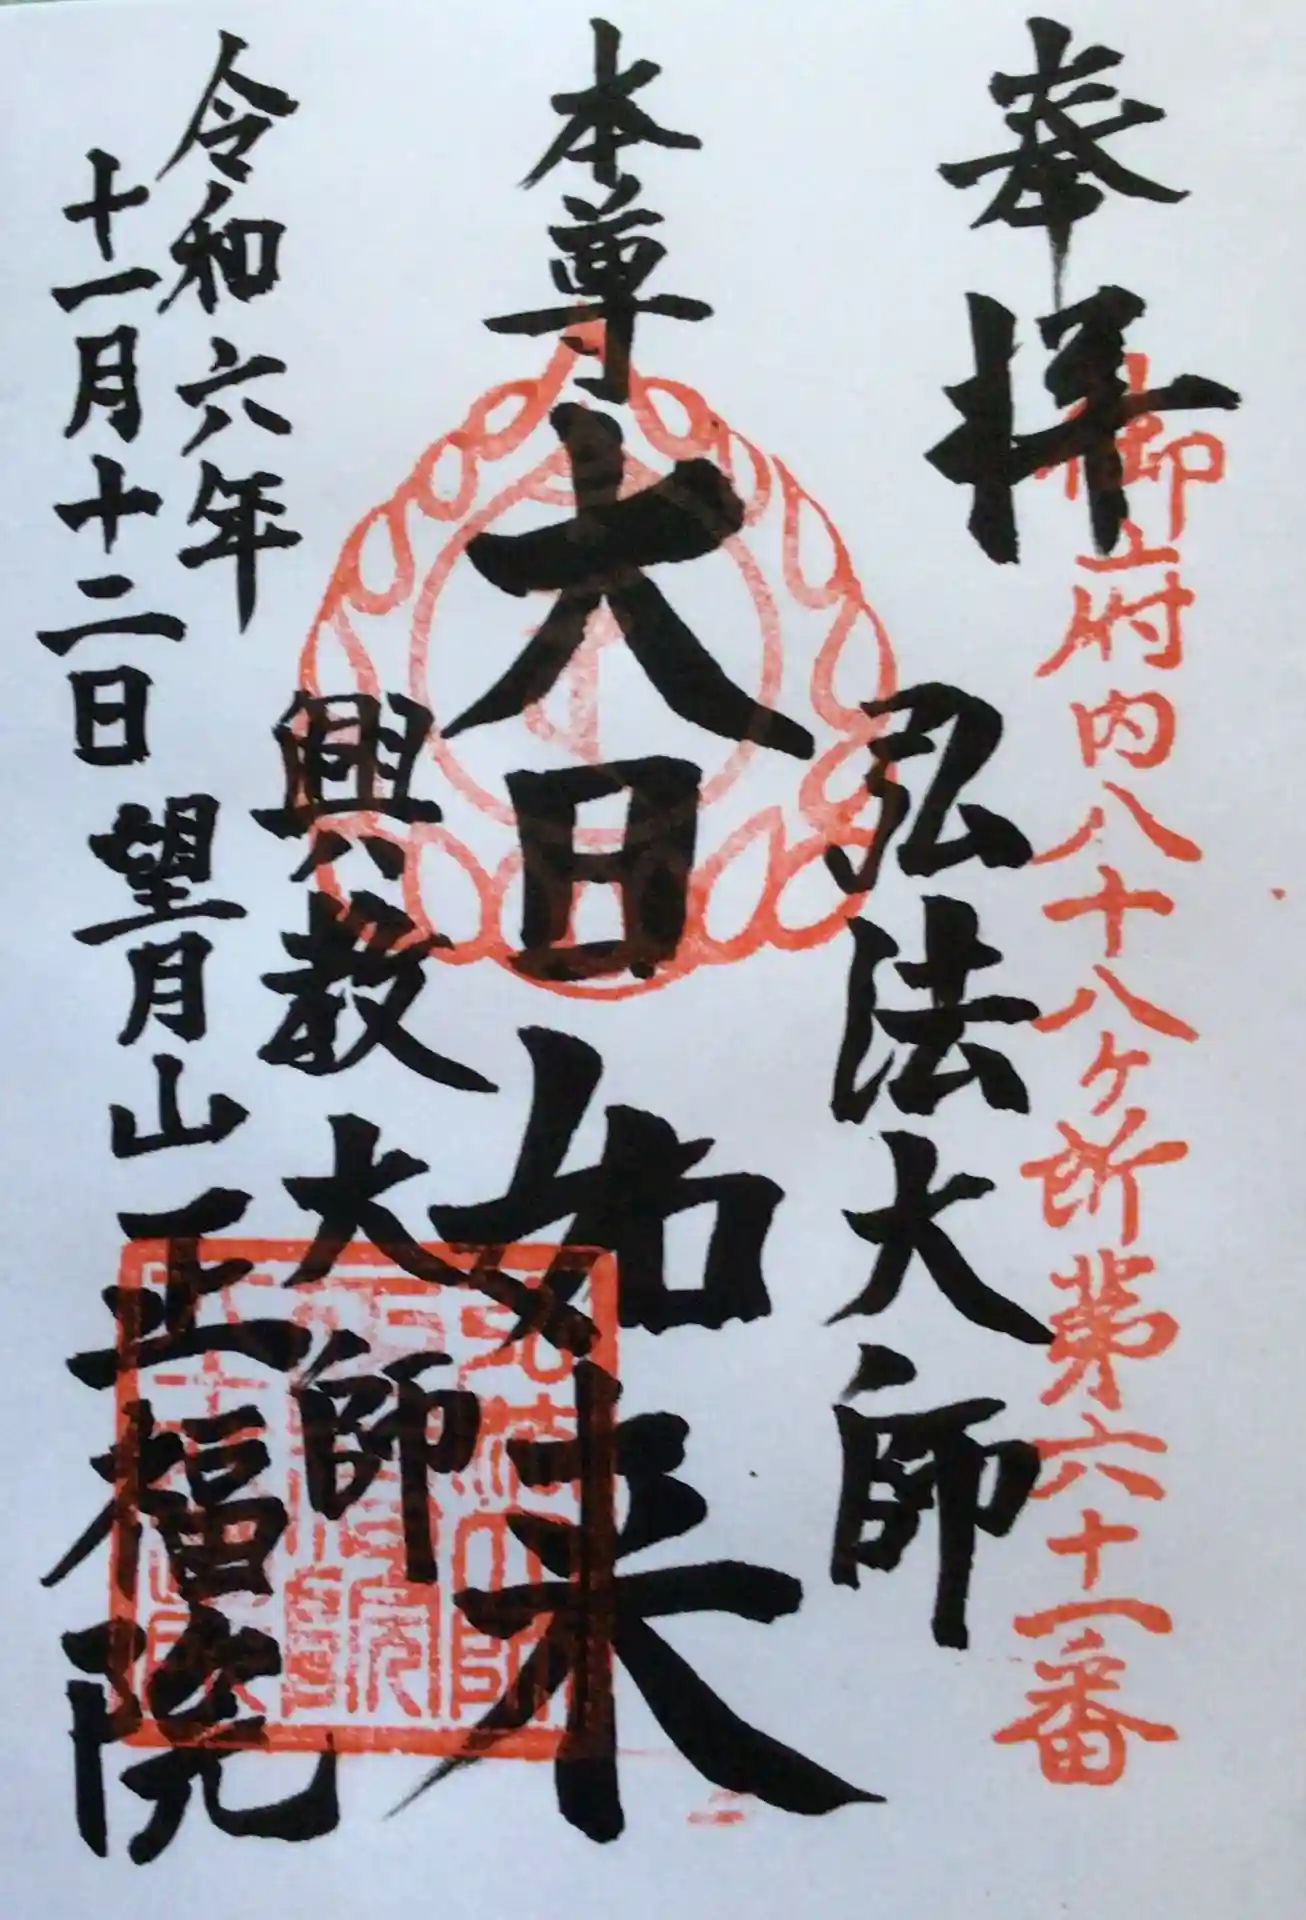 奉拝
御府内八十八ケ所第六十一番
弘法大師
本尊大日如来
興教大師
令和六年
十一月十二日
望月山正福院